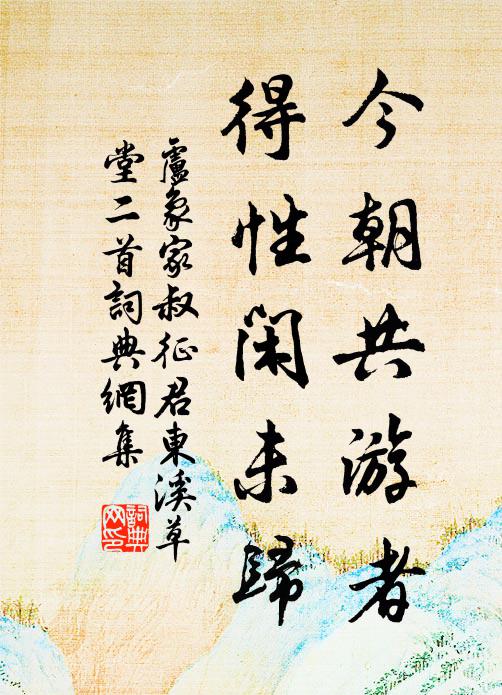 今朝共游者
得性閑未歸
盧象家叔征君東溪草
堂二首詞典網集
詞典网印